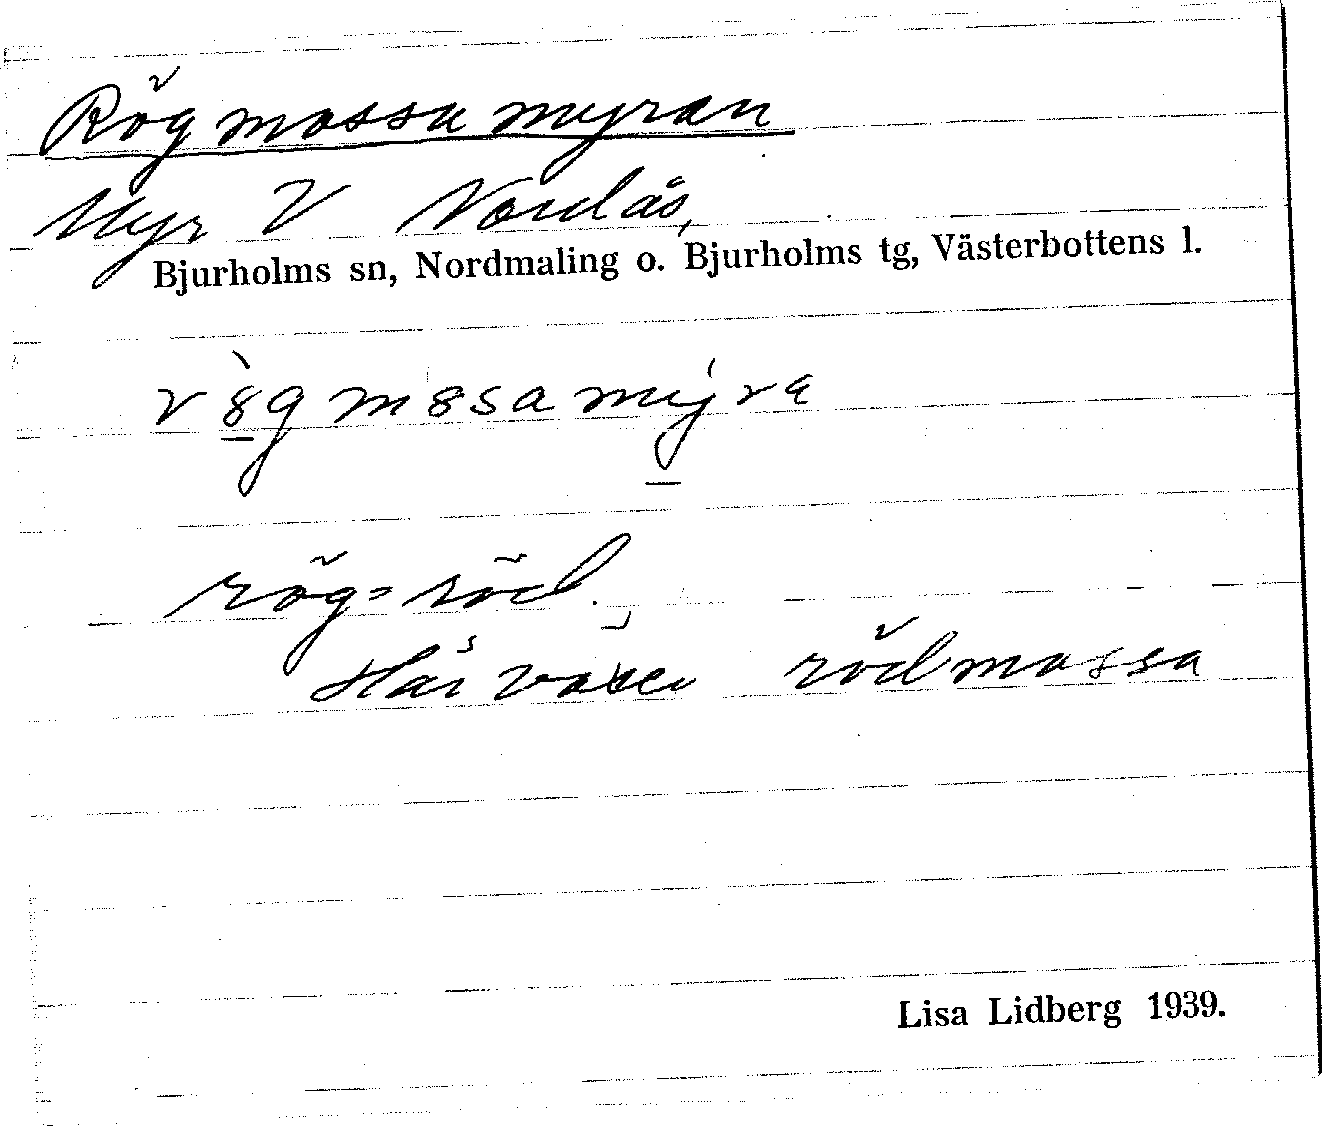 Rögmossamyran
Myr V Nordås,
Bjurholms sn, Nordmaling o. Bjurholms tg, Västerbottens l.
rög = röd.
Här växer rödmossa
Lisa Lidberg 1939.